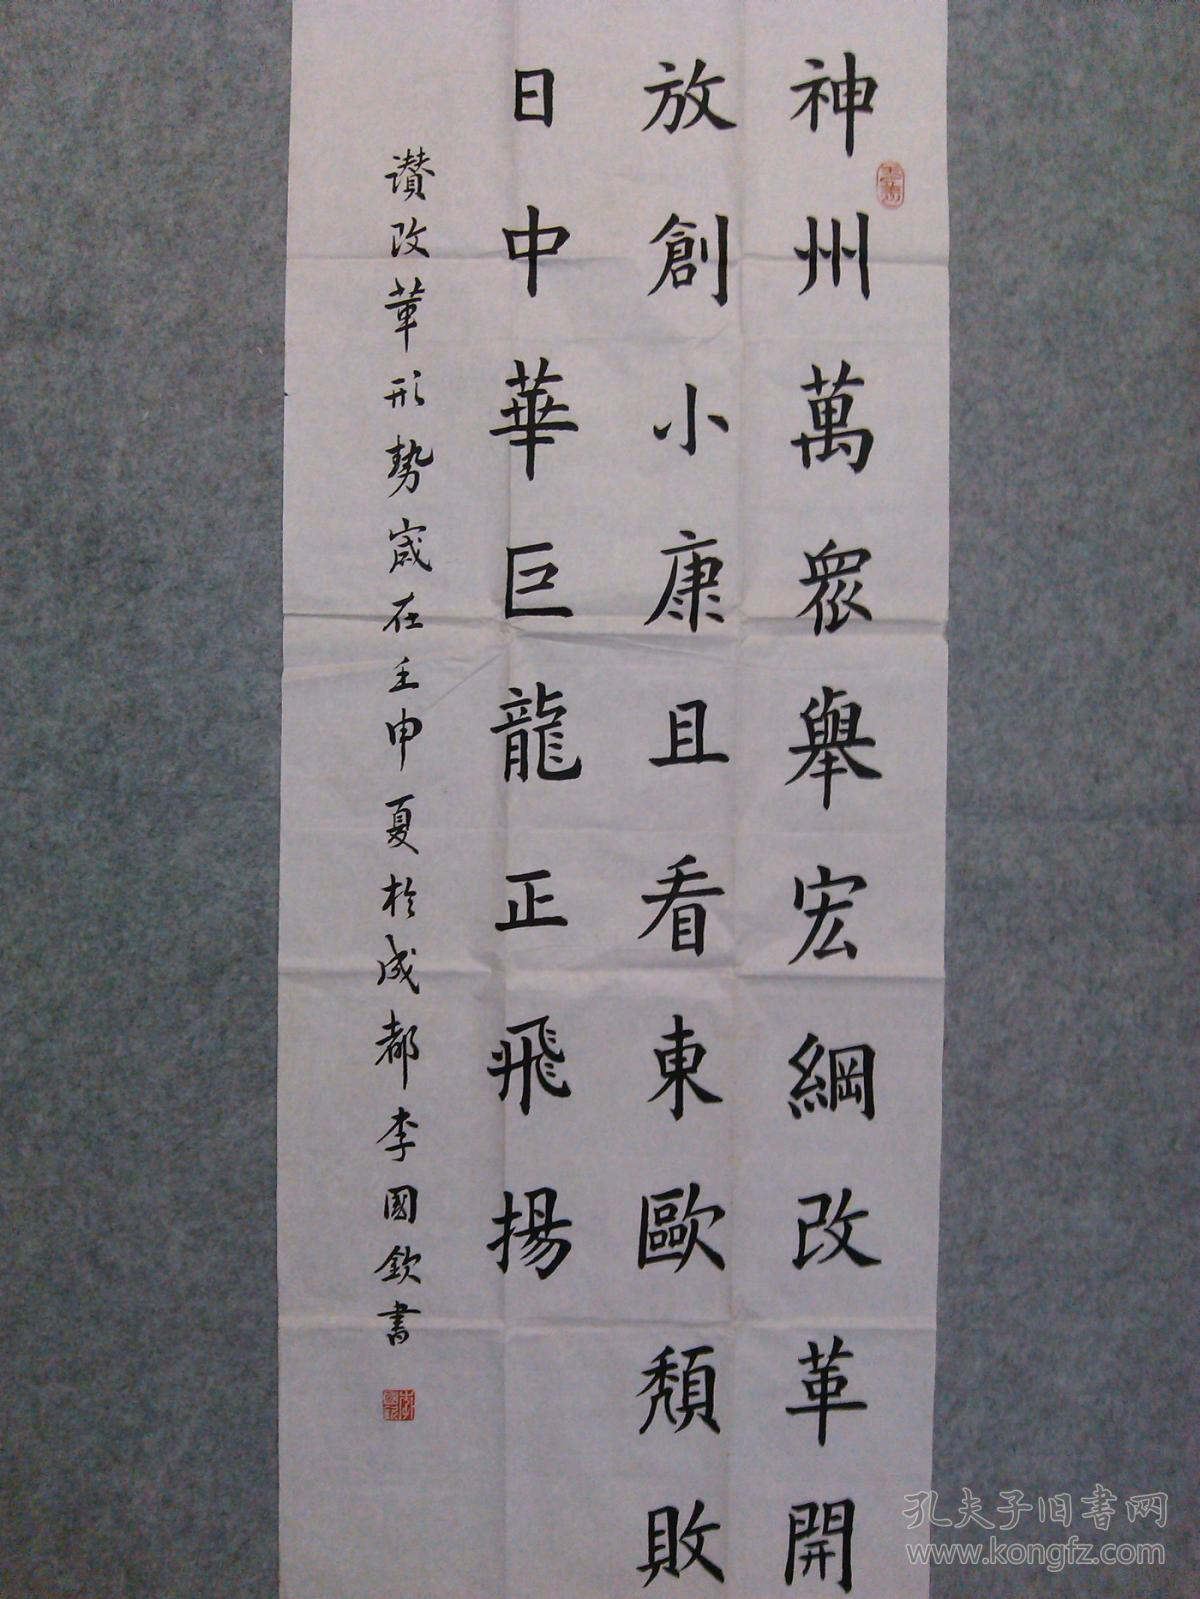 神州萬眾舉宏綱改革開
放創小康且看東歐頹敗
日中華巨龍正飛揚
讚改革形勢歲在壬申夏於成都李國欽書
孔夫子旧书网
www.kongfz.com